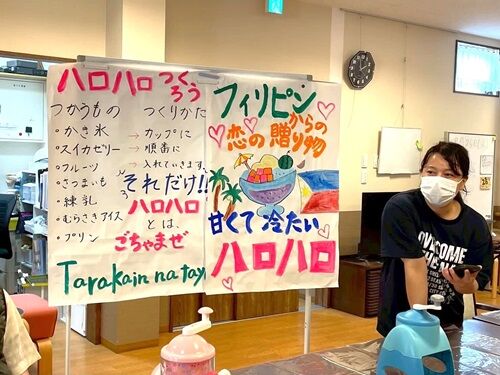 ハロハロつくろう
つかうもの
・かき氷
・スイカゼリー
・フルーツ
・さつまいも
・練乳
・むらさきアイス
・プリン
つくりかた
→カップに
→順番に
→入れていきます
それだけ!!
ハロハロ
とは、
ごちゃまぜ
Tarakain na tayo
フィリピン
からの
恋の贈り物
甘くて冷たい
ハロハロ
OVERCOME